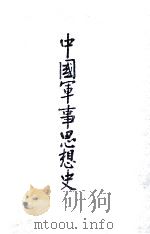 中國軍事思想史
mtoou.info